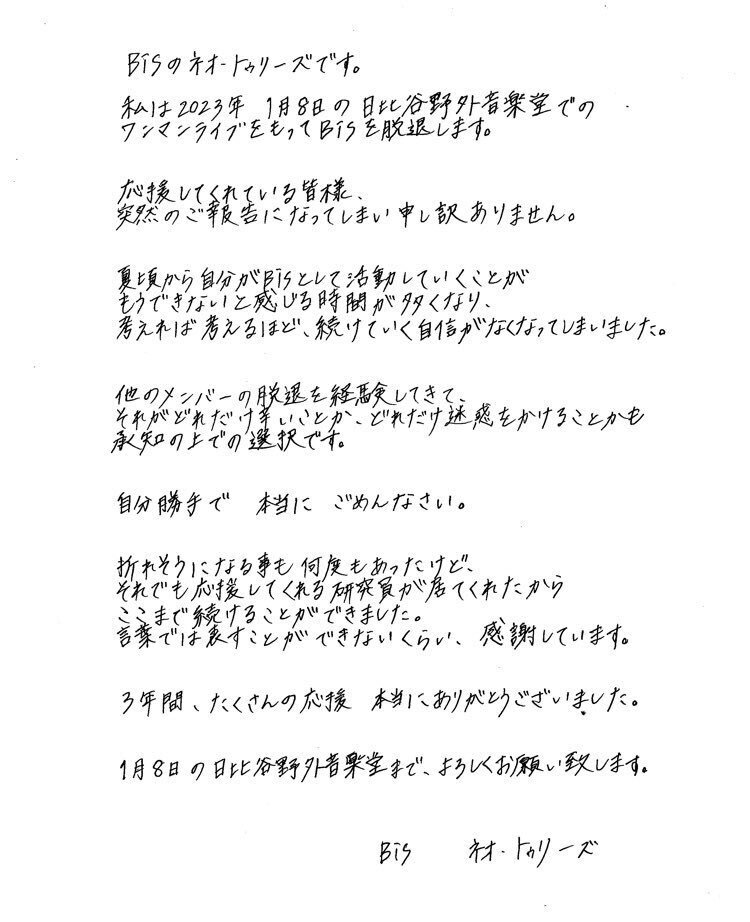 BiSのネオ・トゥリーズです。
私は2023年 1月8日の日比谷野外音楽堂での
ワンマンライブをもってBiSを脱退します。
応援してくれている皆様、
突然のご報告になってしまい申し訳ありません。
夏頃から自分がBiSとして活動していくことが
もうできないと感じる時間が多くなり、
考えれば考えるほど、続けていく自信がなくなってしまいました。
他のメンバーの脱退を経験してきて、
それがどれだけ辛いことか、どれだけ迷惑をかけることかも
承知の上での選択です。
自分勝手で 本当に ごめんなさい。
折れそうになる事も何度もあったけど、
それでも応援してくれる研究員が居てくれたから
ここまで続けることができました。
言葉では表すことができないくらい、感謝しています。
3年間、たくさんの応援 本当にありがとうございました。
1月8日の日比谷野外音楽堂まで、よろしくお願い致します。
BiS ネオ・トゥリーズ